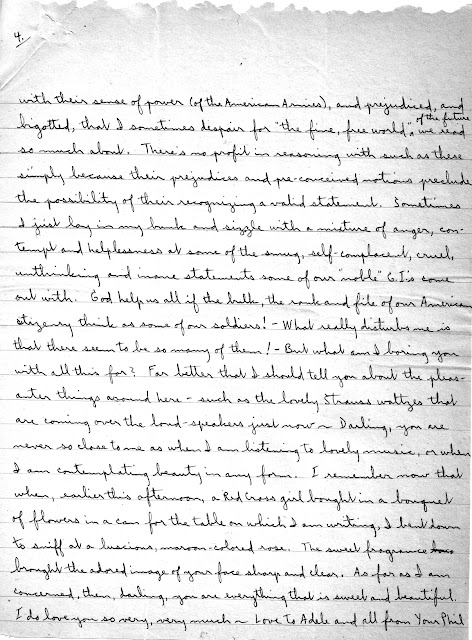 4.
with their sense of power (of the American Armies), and prejudiced, and
bigotted, that I sometimes despair for "the fine, free world", of the future we read
so much about. There's no profit in reasoning with such as these
simply because their prejudices and pre-conceived notions preclude
the possibility of their recognizing a valid statement. Sometimes
I just lay in my bunk and sizzle with a mixture of anger, con-
tempt and helplessness at some of the smug, self-complacent, cruel,
unthinking and inane statements some of our "noble" G.I.s come
out with. God help us all if the bulk, the rank and file of our American
citizenry think as some of our soldiers! - What really disturbs me is
that there seem to be so many of them! - But what am I boring you
with all this for? Far better that I should tell you about the pleas-
anter things around here - such as the lovely Strauss waltzes that
are coming over the loud-speakers just now ~ Darling, you are
never so close to me as when I am listening to lovely music, or when
I am contemplating beauty in any form. I remember now that
when, earlier this afternoon, a Red Cross girl bought in a bouquet
of flowers in a can for the table on which I am writing, I bent down
to sniff at a luscious, maroon-colored rose. The sweet fragrance
brought the adored image of your face sharp and clear. As far as I am
concerned, then, darling, you are everything that is sweet and beautiful.
I do love you so very, very much ~ Love to Adele and all from Your Phil